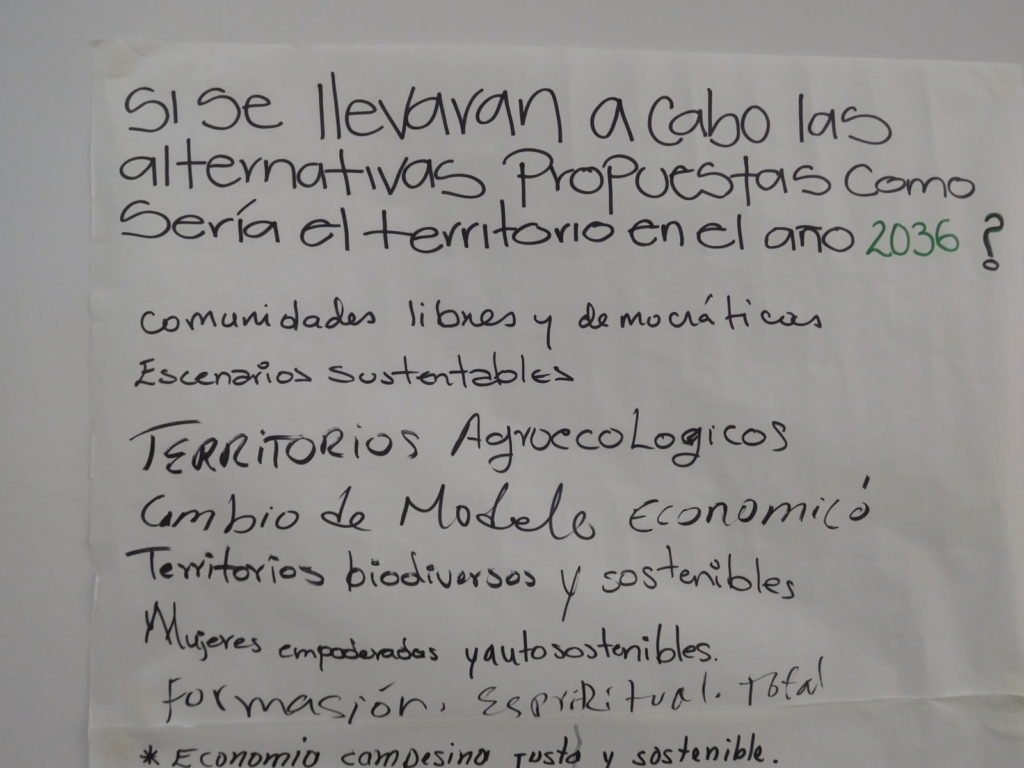 SI SE llevaran a cabo las
alternativas Propuestas como
Sería el territorio en el año 2036 ?
comunidades libres y democráticas
Escenarios sustentables
TERRITORIOS AgroecoLogicos
Cambio de Modelo Economicó
Territorios biodiversos y sostenibles
Mujeres empoderadas y autosostenibles.
formasión, Espiritual. Total
* Economia campesina Justa y sostenible.